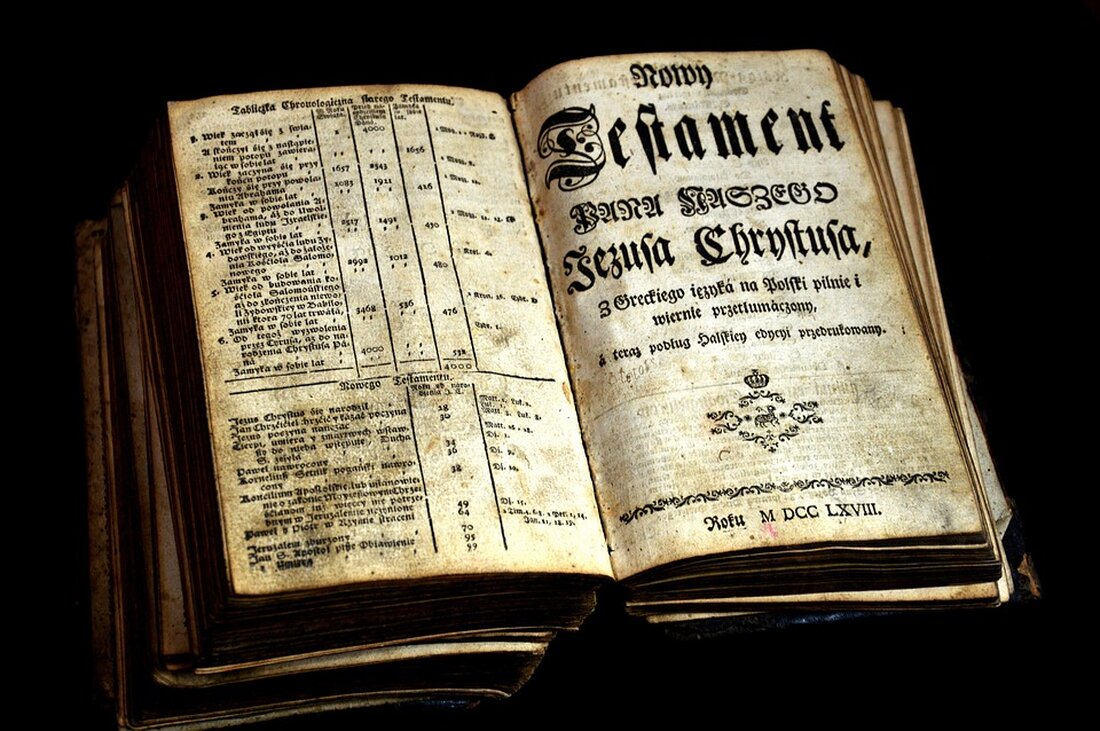 Tabliczka Chronologiczna starego Testamentu.
4000
niem potopu zawiera-
iąc w sobie lat 1656
2. Wiek zaczyna się przy
końcu potopu 1657 2343
Kończy się przy powoła-
niu Abrahama 2083 1921
Zamyka w sobie lat 426
3. Wiek od powołania A-
brahama, aż do
nienia ludu Izraelskie-
go z Egiptu 2517 1491
Zamyka w sobie lat 430
4. Wiek od wyyścia ludu Ży-
dowskiego, aż do założe-
nia Kościoła Salomo-
nowego 2992 1012
Zamyka w sobie lat 480
5. Wiek od budowania ko-
ścioła Salomońskiego
aż do skończenia niewo-
li Żydowskiey w Babilo-
nii ktora 70 lat trwała, 3468 536
Zamyka w sobie lat 476
6. Od tego wyzwolenia
przez Cyrusa, aż do na-
rodzenia Chrystusa Pa-
na 4000
Zamyka w sobie lat 532
4000
Nowego Testamentu.
Jezus Chrystus się narodził
Jan Chrzciciel chrzcić y kazać poczyna 28
Jezus poczyna nauczać 30
Cierpi, umiera y zmartwych wstaw-
szy do nieba wstępuie, Ducha
S. zsyła 34
Paweł nawrocony 36
Korneliusz Setnik pogański nawro-
cony 38
Koncilium Apostolskie, lub ustanowie-
nie o zakonie Moyżeszowym Chrze-
ścianom iuż więcey nie potrze-
bnym w Jeruzalemie uczynione 49
Paweł y Piotr w Rzymie straceni 64
Jeruzalem zburzony 70
Jan S. Apostoł pisze Obiawienie 95
99
Nowy
Testament
PANA NASZEGO
Jezusa Chrystusa,
Z Greckiego ięzyká na Polski pilnie i
wiernie przetłumáczony,
á teraz podług Halskiey edycyi przedrukowany.
Roku M DCC LXVIII.